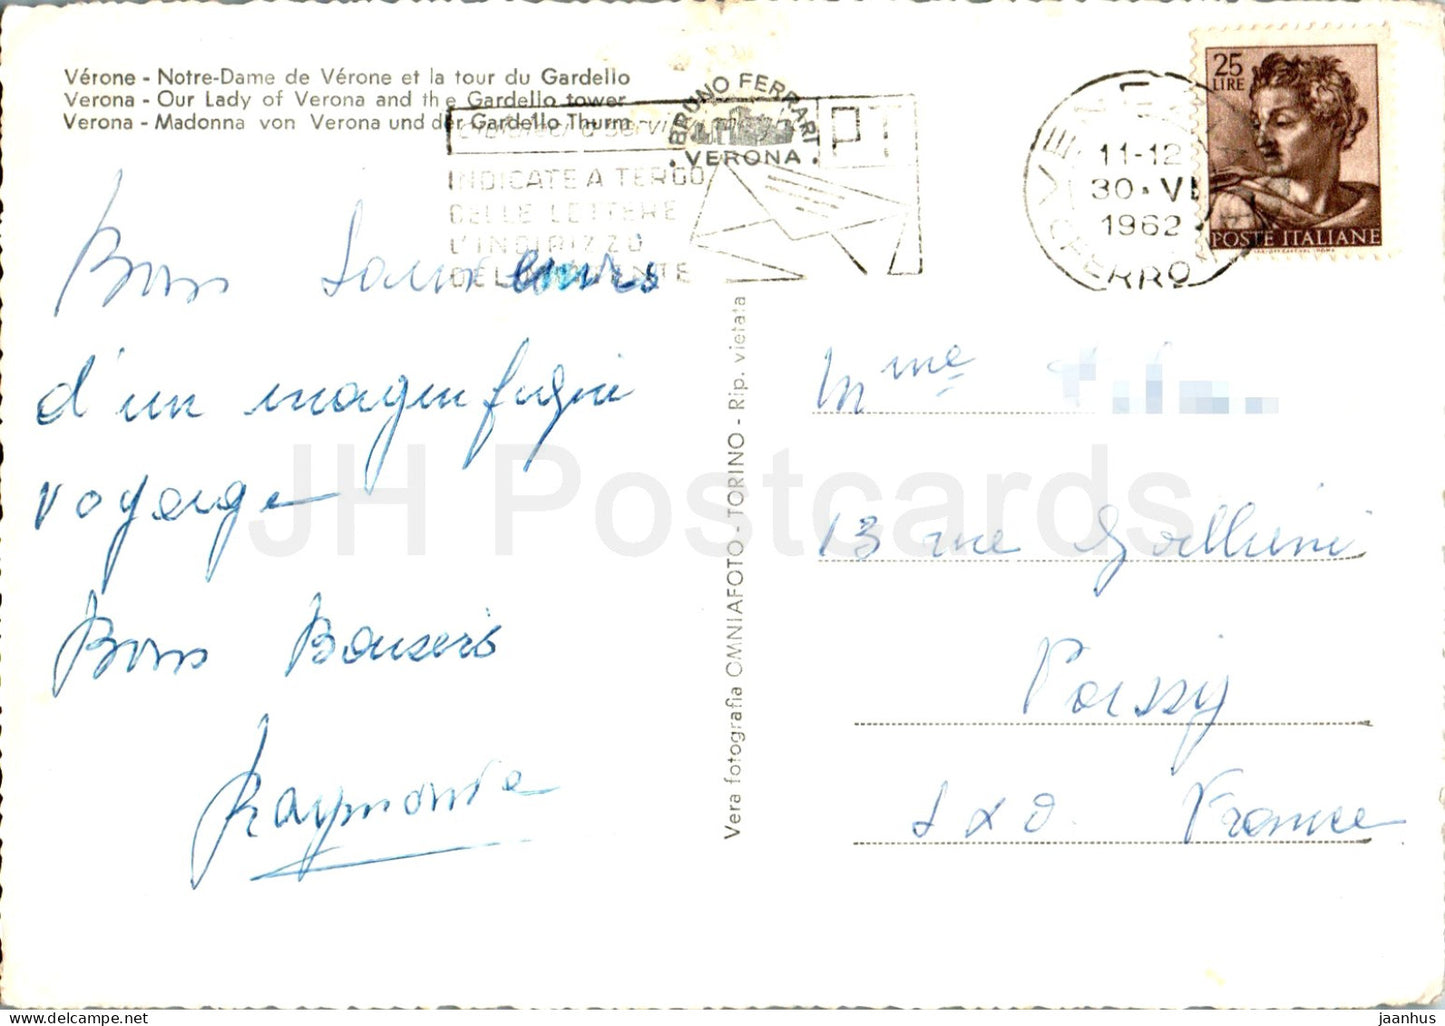 Vérone - Notre-Dame de Vérone et la tour du Gardello
Verona - Our Lady of Verona and the Gardello tower
Verona - Madonna von Verona und der Gardello Thurm
BRUNO FERRARI
• VERONA •
PT
INDICATE A TERGO
DELLE LETTERE
L'INDIRIZZO
DEL MITTENTE
VE
11-12
30 • VI
1962
FERRO
25
LIRE
POSTE ITALIANE
Bons
d'un magnifique
voyage
Bons Baisers
Raymonde
Vera fotografia OMNIAFOTO - TORINO - Rip. vietata
Mme
13 rue
Poissy
S x O. France
JH Postcards
jaanhus
delcampe.net